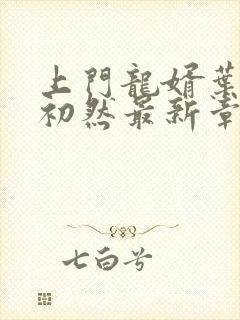 上門龍婿葉
初然最新章
七白兮